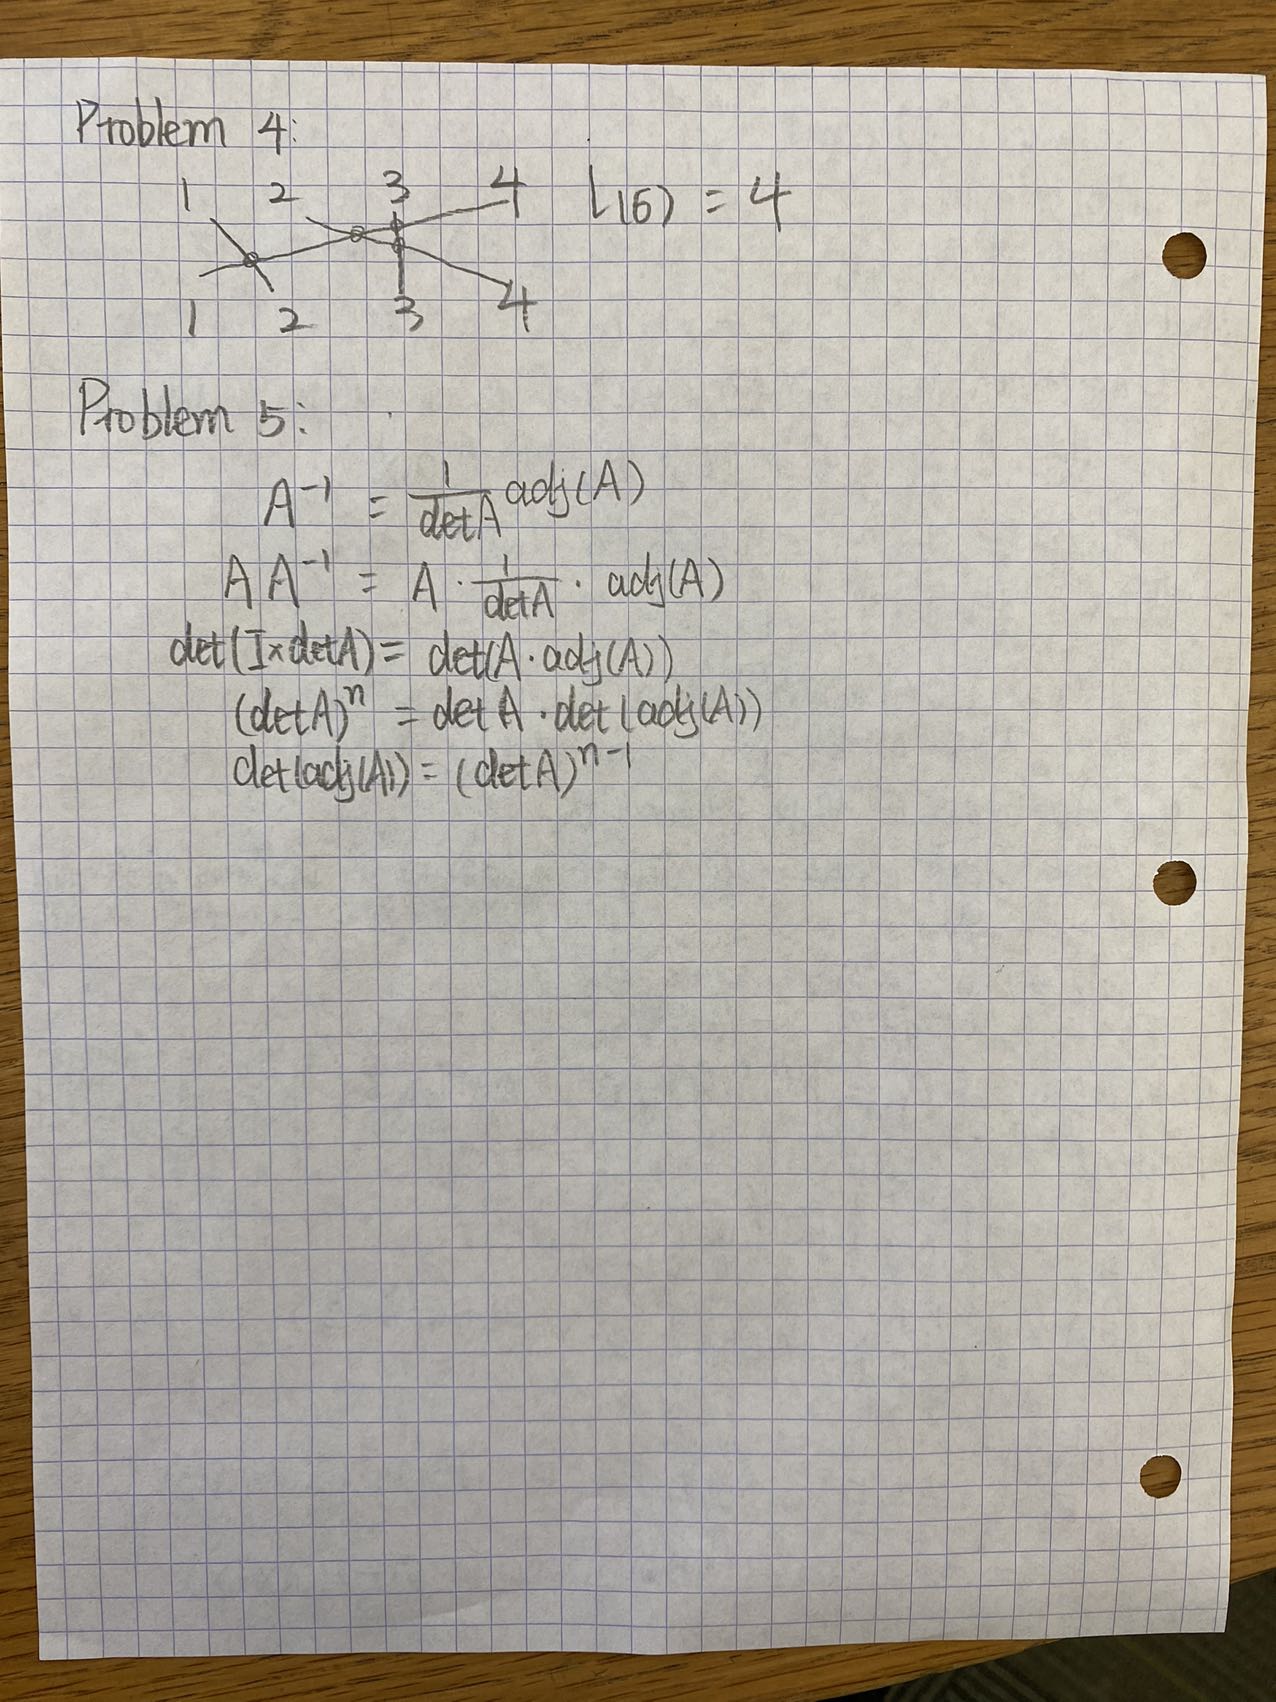 Problem 4:
1 2 3 4 l(σ) = 4
1 2 3 4
Problem 5:
A⁻¹ = 1/detA adj(A)
A A⁻¹ = A · 1/detA · adj(A)
det(I×detA) = det(A·adj(A))
(detA)ⁿ = detA · det(adj(A))
det(adj(A)) = (detA)ⁿ⁻¹